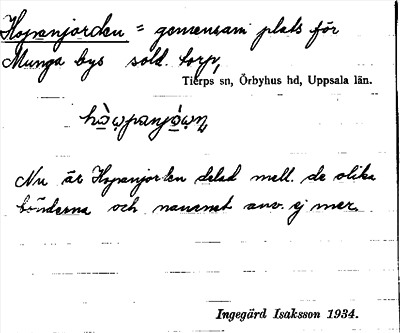 Hopanjorden = gemensam plats för
Munga bys sold. torp,
Tierps sn, Örbyhus hd, Uppsala län.
Nu är Hopanjorden delad mell. de olika
bönderna och namnet anv. ej mer.
Ingegärd Isaksson 1934.